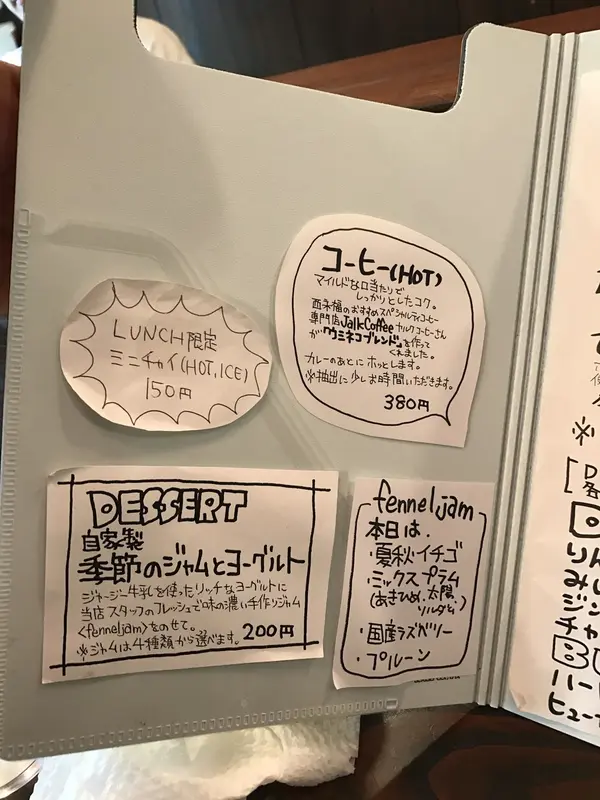 コーヒー(HOT)
マイルドな口当たりで
しっかりとしたコク。
西永福のおすすめスペシャルティコーヒー
専門店JalkCoffeeヤルクコーヒーさん
が「ウミネコブレンド」を作って
くれました。
カレーのあとにホッとします。
※抽出に少しお時間いただきます。
380円
LUNCH限定
ミニチャイ(HOT,ICE)
150円
DESSERT
自家製
季節のジャムとヨーグルト
ジャージー牛乳を使ったリッチなヨーグルトに
当店スタッフのフレッシュで味の濃い手作りジャム
〈fenneljam〉をのせて。
※ジャムは4種類から選べます。 200円
fennel jam
本日は、
・夏秋イチゴ
・ミックスプラム
(あきひめ、太陽、
ソルダム)
・国産ラズベリー
・プルーン
※
りん
みし
ジン
チャ
BU
ハー
ヒュー